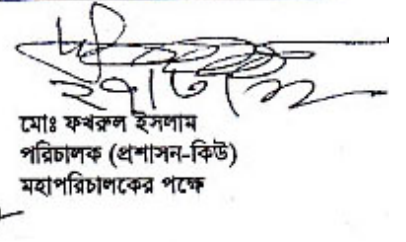 মোঃ ফখরুল ইসলাম
পরিচালক (প্রশাসন-কিউ)
মহাপরিচালকের পক্ষে